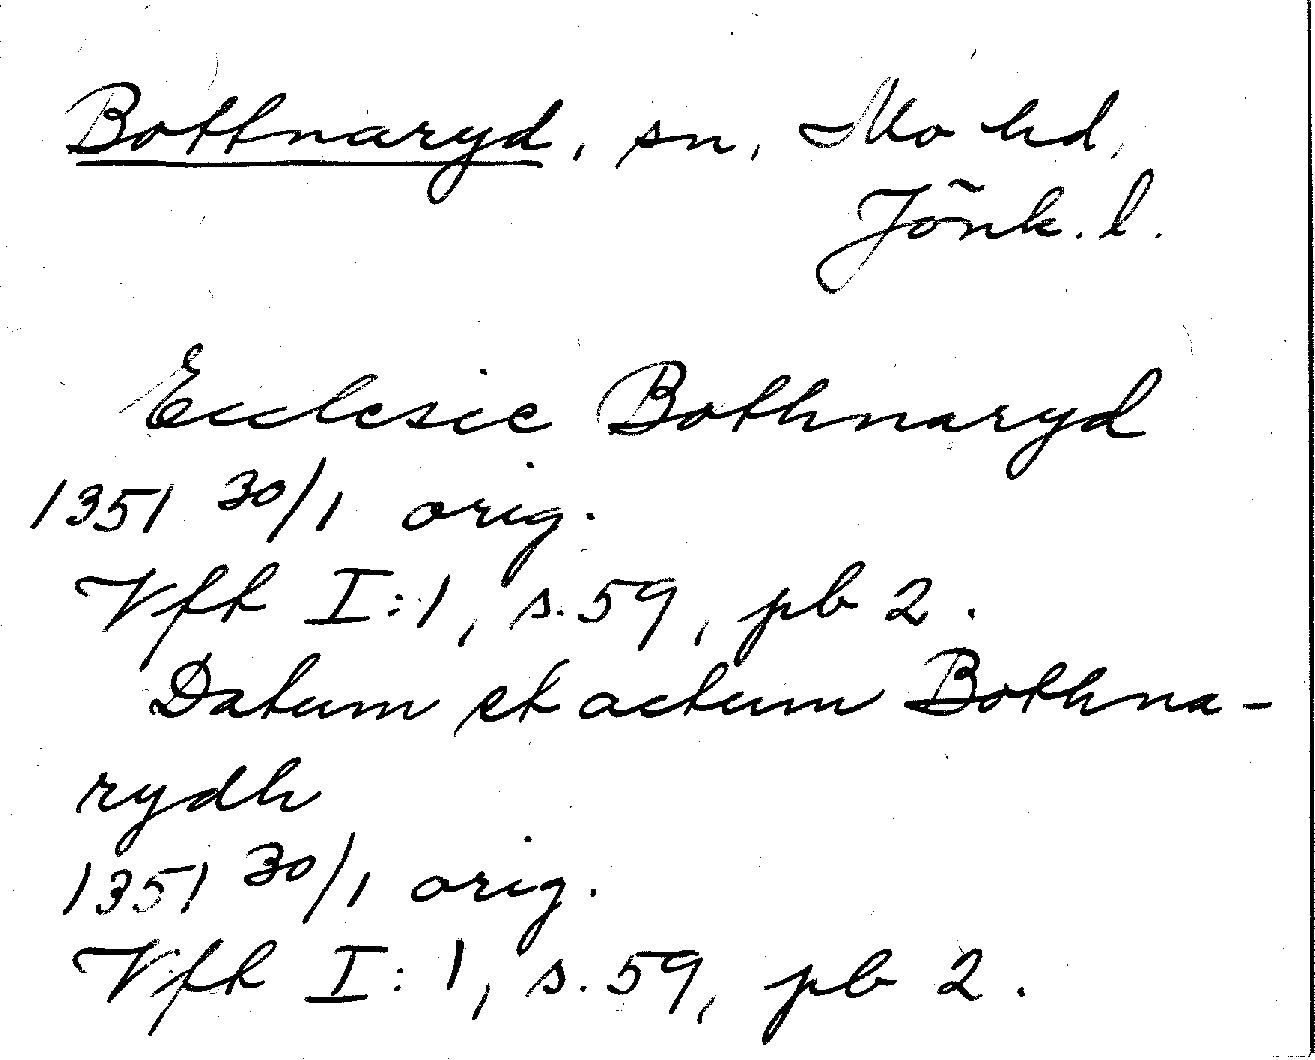 Bottnaryd, sn, Mo hd,
Jönk. l.
Ecclesie Bothnaryd
1351 30/1 orig.
Vfh I:1, s. 59, pb 2.
Datum et actum Bothna-
rydh
1351 30/1 orig.
Vfh I:1, s. 59, pb 2.